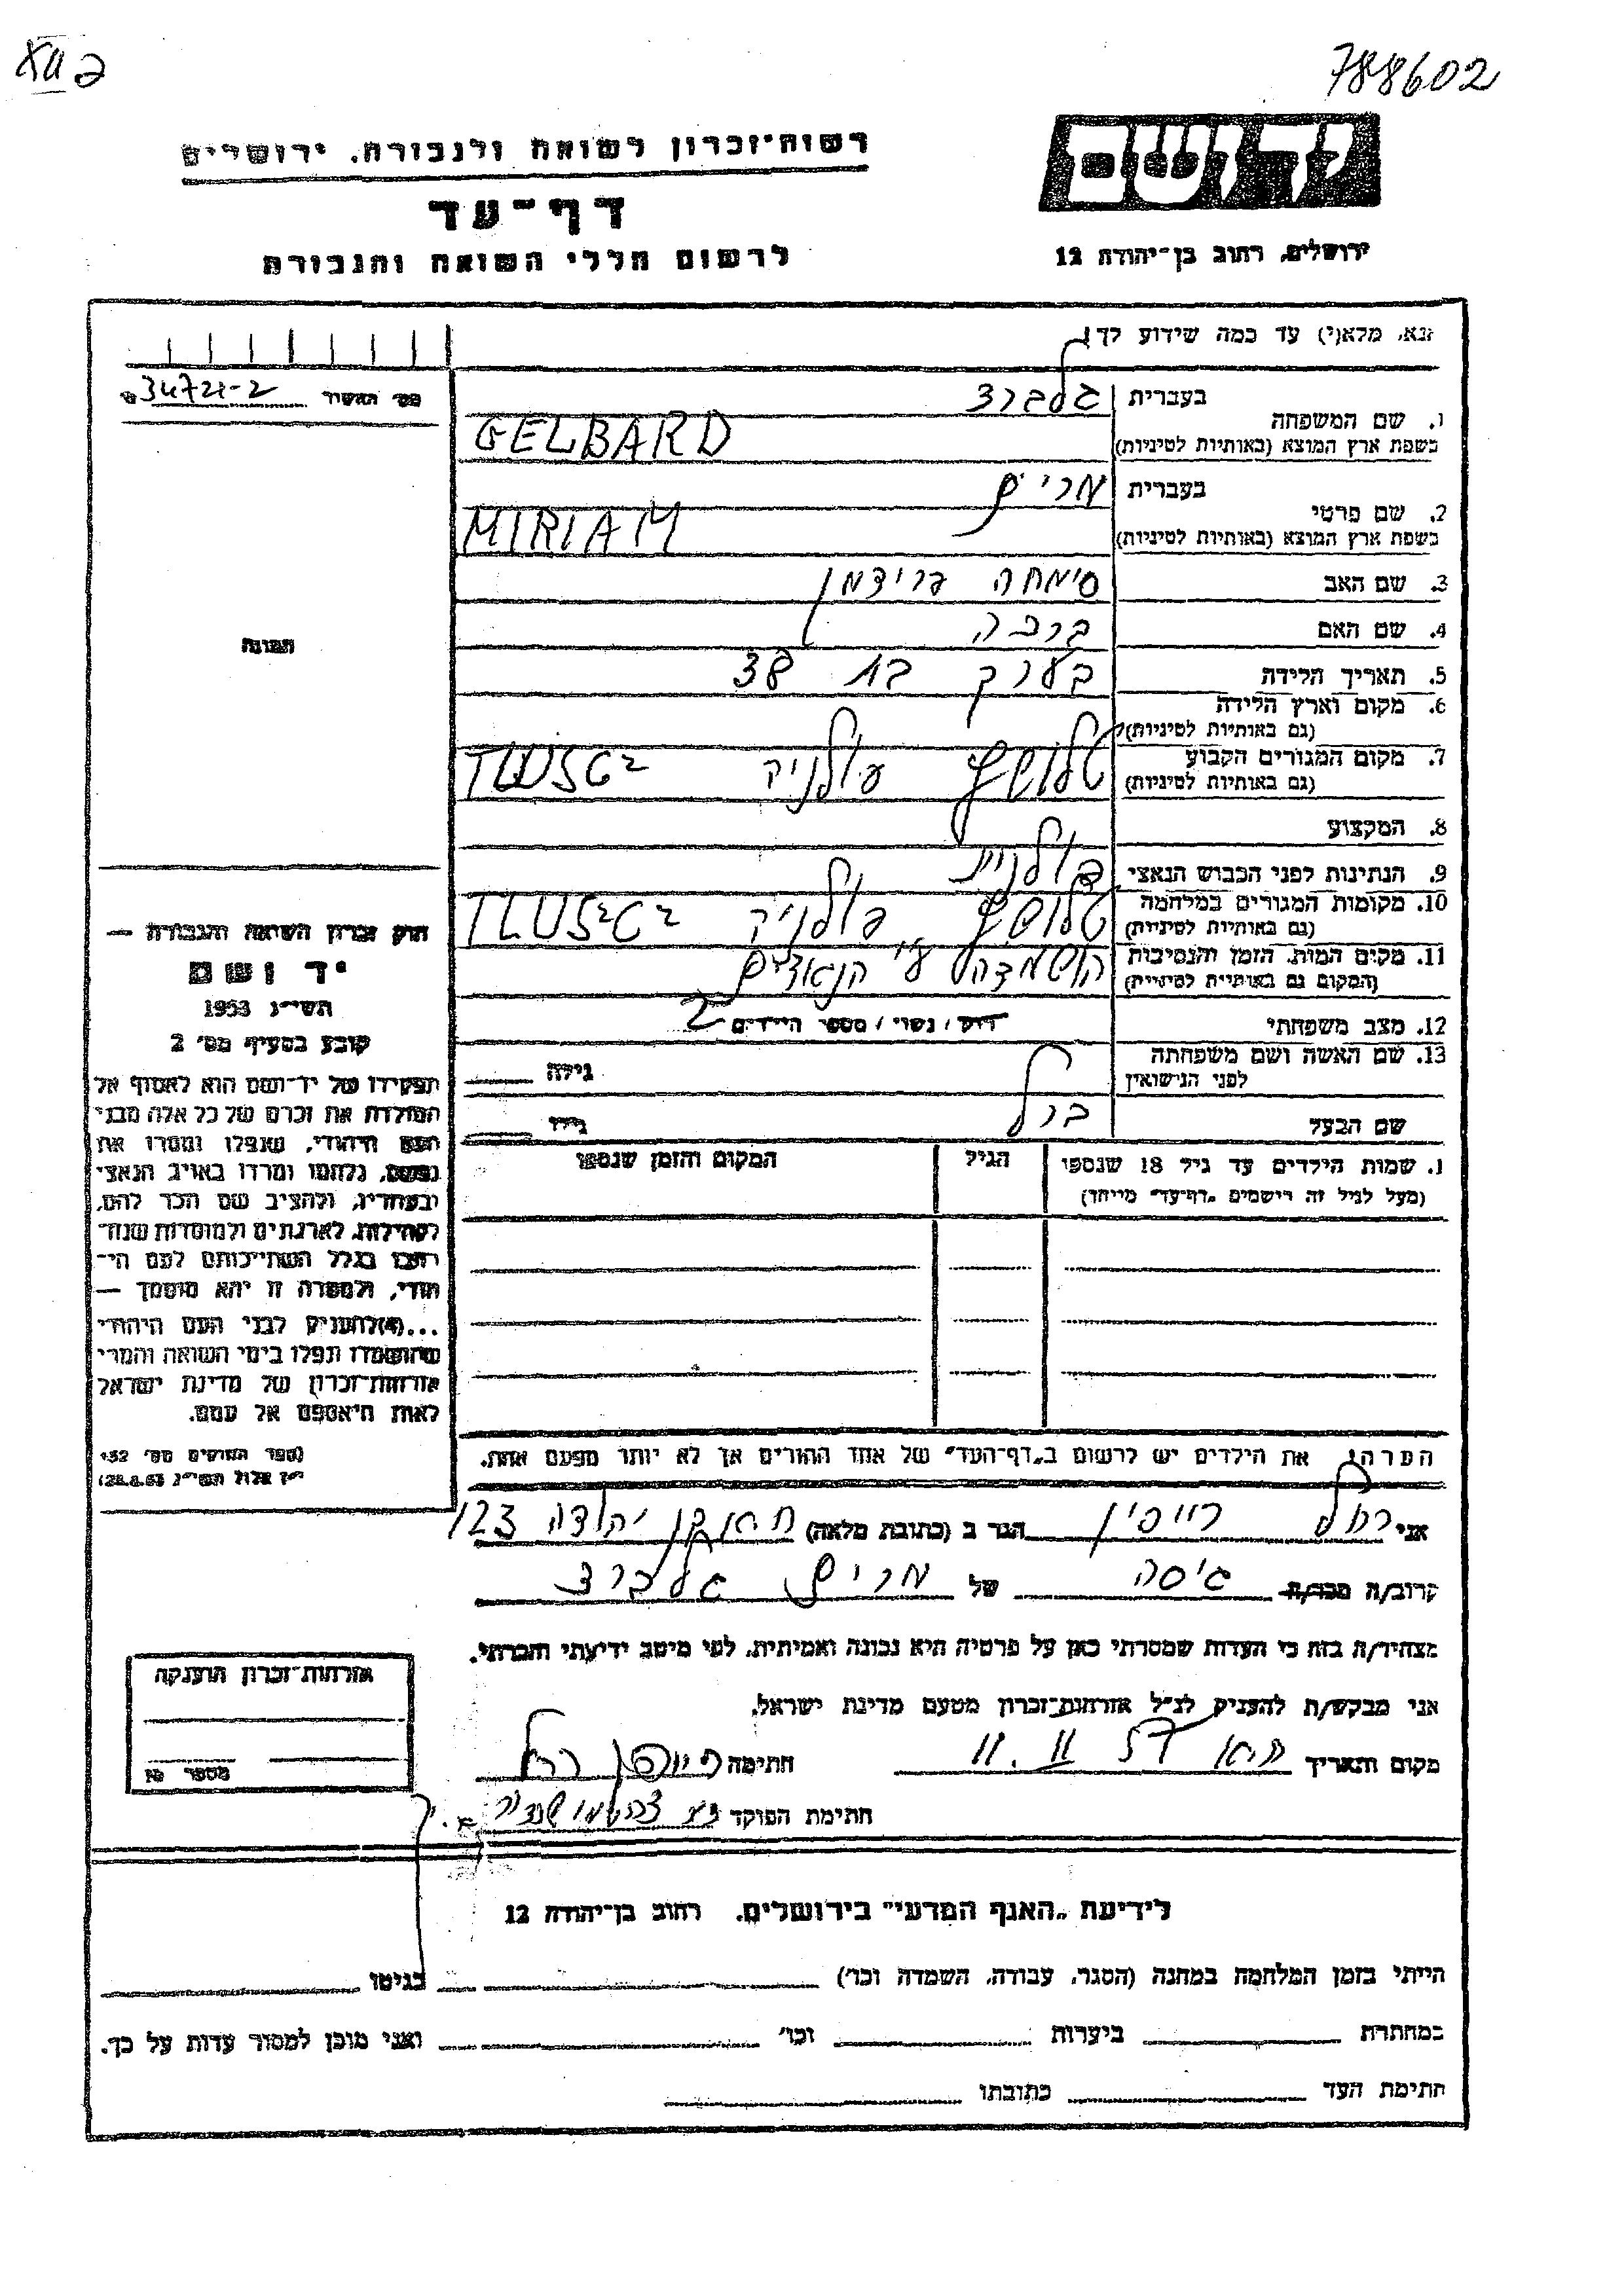 XII ב
788602
רשות־זכרון לשואה ולגבורה, ירושלים
יד ושם
דף־עד
לרשום חללי השואה והגבורה
ירושלים, רחוב בן־יהודה 12
נא, מלא(י) עד כמה שידוע לך!
מס׳ האשיר 34721-2
1. שם המשפחה
בעברית גלברד
בשפת ארץ המוצא (באותיות לטיניות) GELBARD
2. שם פרטי
בעברית מרים
בשפת ארץ המוצא (באותיות לטיניות) MIRIAM
3. שם האב סימחה פרידמן
4. שם האם ברכה
5. תאריך הלידה בערך בת 38
6. מקום וארץ הלידה
(גם באותיות לטיניות)
7. מקום המגורים הקבוע
(גם באותיות לטיניות)
8. המקצוע
9. הנתינות לפני הכבוש הנאצי פולנית
10. מקומות המגורים במלחמה
(גם באותיות לטיניות) פולניה
11. מקום המות, הזמן והנסיבות
(המקום גם באותיות לטיניות) הושמדה ע״י הנאצים
12. מצב משפחתי רוק / נשוי / מספר הילדים 2
13. שם האשה ושם משפחתה
לפני הנישואין
גילה
שם הבעל ברל
גילו
1. שמות הילדים עד גיל 18 שנספו
(מעל לגיל זה רישמים „דף־עד״ מייחד)
הגיל
המקום והזמן שנספו
הערה: את הילדים יש לרשום ב„דף־העד״ של אחד ההורים אך לא יותר מפעם אחת.
תמונה
חוק זכרון השואה והגבורה —
יד ושם
תשי״ג 1953
קובע בסעיף מס׳ 2
תפקידו של יד־ושם הוא לאסוף אל
המולדת את זכרם של כל אלה מבני
העם היהודי, שנפלו ומסרו את
נפשם, נלחמו ומרדו באויב הנאצי
ובעוזריו, ולהציב שם וזכר להם,
לקהילות, לארגונים ולמוסדות שנח־
רבו בגלל השתייכותם לעם הי־
הודי, ולמטרה זו יהא מוסמך —
...(4) להעניק לבני העם היהודי
שהושמדו ונפלו בימי השואה והמרי
אזרחות־זכרון של מדינת ישראל
לאות היאספם אל עמם.
(ספר החוקים מס׳ 132
י״ז אלול תשי״ג 28.8.53)
אני רחל רייפין הגר ב (כתובת מלאה) ת״א בן יהודה 123
קרוב/ה מכר/ה גיסה של מרים גלברד
מצהיר/ה בזה כי העדות שמסרתי כאן על פרטיה היא נכונה ואמיתית, לפי מיטב ידיעתי והכרתי.
אני מבקש/ת להעניק לנ״ל אזרחות־זכרון מטעם מדינת ישראל.
מקום ותאריך ת״א 11. 11 חתימה רחל
חתימת הפוקד
אזרחות־זכרון הוענקה
מספר
לידיעת „האגף המדעי״ בירושלים, רחוב בן־יהודה 12
הייתי בזמן המלחמה במחנה (הסגר, עבודה, השמדה וכו׳) בגיטו
במחתרת ביערות וכו׳ ואני מוכן למסור עדות על כך.
חתימת העד כתובתו